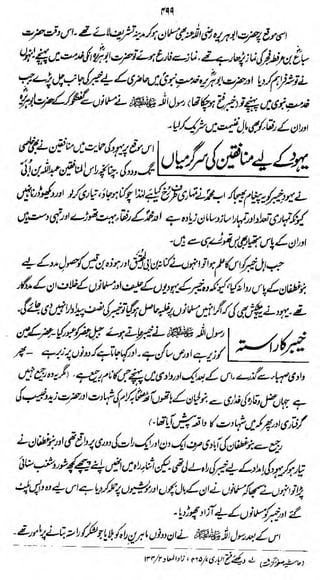 ۴۹۹
اسی موقع پر حضرت ابو ہریرہ رضی اللہ عنہ بھی مسلمان ہو کر مدینہ تشریف لائے تھے۔ اس وقت حضرت
سباع بن عرفطہ فجر کی نماز پڑھا رہے تھے۔ نماز سے فارغ ہوئے تو حضرت ابو ہریرہ ان کی خدمت میں پہنچے انہوں
نے توشہ فراہم کر دیا اور حضرت ابو ہریرہ خدمتِ نبوی میں حاضری کے لیے خیبر کی جانب چل پڑے جب
خدمتِ نبوی میں پہنچے تو (خیبر فتح ہو چکا تھا) رسول اللہ ﷺ نے مسلمانوں سے گفتگو کر کے حضرت ابو ہریرہ
اور ان کے رفقاء کو بھی مال غنیمت میں شریک کر لیا۔
یہود کے لیے منافقین کی سرگرمیاں
اس موقع پر یہود کی حمایت میں منافقین نے بھی خاصی
تگ و دو کی۔ چنانچہ راس المنافقین عبداللہ بن اُبَی
نے یہودِ خیبر کو یہ پیغام بھیجا کہ اب محمد نے تمہاری طرف رُخ کیا ہے لہٰذا چوکنا ہو جاؤ، تیاری کر لو اور دیکھو ڈرنا نہیں
کیونکہ تمہاری تعداد اور تمہارا ساز و سامان زیادہ ہے اور محمد کے رفقاء بہت تھوڑے اور تہی دست ہیں
اور ان کے پاس ہتھیار بھی بس تھوڑے ہی سے ہیں۔
جب اہلِ خیبر کو اس کا علم ہوا تو انہوں نے کنانہ بن ابی الحُقَیق اور ہوذہ بن قیس کو حصولِ مدد کے لیے
بنو غطفان کے پاس روانہ کیا کیونکہ وہ خیبر کے یہودیوں کے حلیف اور مسلمانوں کے خلاف ان کے مددگار
تھے۔ یہود نے یہ پیشکش بھی کی کہ اگر انہیں مسلمانوں پر غلبہ حاصل ہو گیا تو خیبر کی نصف پیداوار انہیں دی جائے گی۔
خیبر کا راستہ
رسول اللہ ﷺ نے خیبر جاتے ہوئے جبلِ عصر کو عبور کیا۔ عصر کے عین
کو زیر ہے اور ص ساکن ہے۔ اور کہا جاتا ہے کہ دونوں پر زبر ہے ۔ پھر
وادی صہباء سے گزرے۔ اس کے بعد ایک اور وادی میں پہنچے جس کا نام رجیع ہے۔ (مگر یہ وہ رجیع نہیں
ہے جہاں عضل و قارہ کی غداری سے بنو لحیان کے ہاتھوں آٹھ صحابہ کرام کی شہادت اور حضرت زید و خبیب کی
گرفتاری اور پھر مکہ میں شہادت کا واقعہ پیش آیا تھا۔)
رجیع سے بنو غطفان کی آبادی صرف ایک دن اور ایک رات کی دوری پر واقع تھی اور بنو غطفان نے
تیار ہو کر یہود کی امداد کے لیے خیبر کی راہ لے لی تھی۔ لیکن اثناء راہ میں انہیں اپنے پیچھے کچھ شور و شغب سنائی
پڑا تو انہوں نے سمجھا کہ مسلمانوں نے ان کے بال بچوں اور مویشیوں پر حملہ کر دیا ہے اس لیے وہ واپس پلٹ
گئے اور خیبر کو مسلمانوں کے لیے آزاد چھوڑ دیا۔
اس کے بعد رسول اللہ ﷺ نے ان دونوں ماہرینِ راہ کو بلایا جو لشکر کو راستہ بتانے پر مامور تھے۔
دیکھئے فتح الباری ۷/۴۶۵، زاد المعاد ۲/۱۳۳